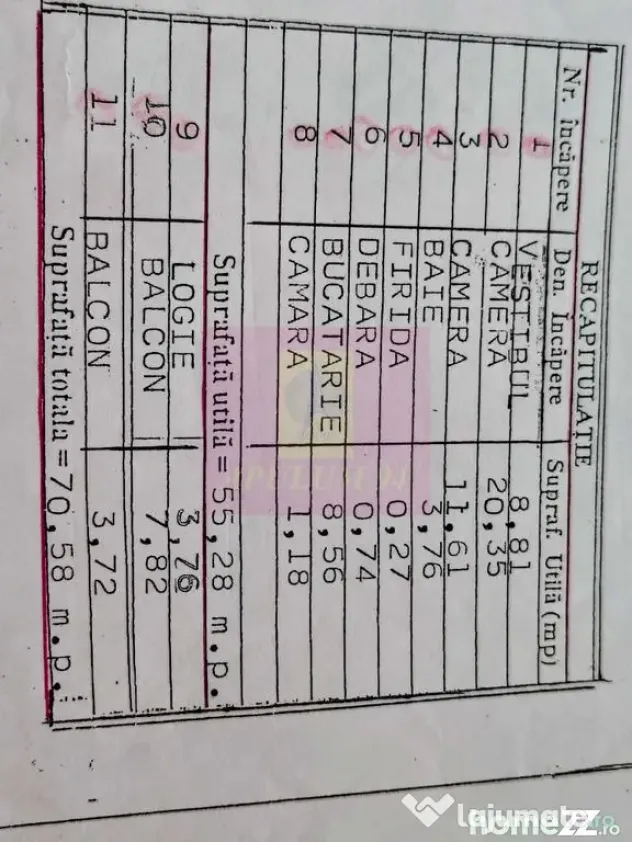 RECAPITULAȚIE
Nr. încăpere Den. Încăpere Supraf. Utilă (mp)
1 VESTIBUL 8,81
2 CAMERA 20,35
3 CAMERA 11,61
4 BAIE 3,76
5 FIRIDA 0,27
6 DEBARA 0,74
7 BUCATARIE 8,56
8 CAMARA 1,18
Suprafață utilă = 55,28 m.p.
9 LOGIE 3,76
10 BALCON 7,82
11 BALCON 3,72
Suprafață totala = 70,58 m.p.
APULUM 94
lajumate
homezz.ro